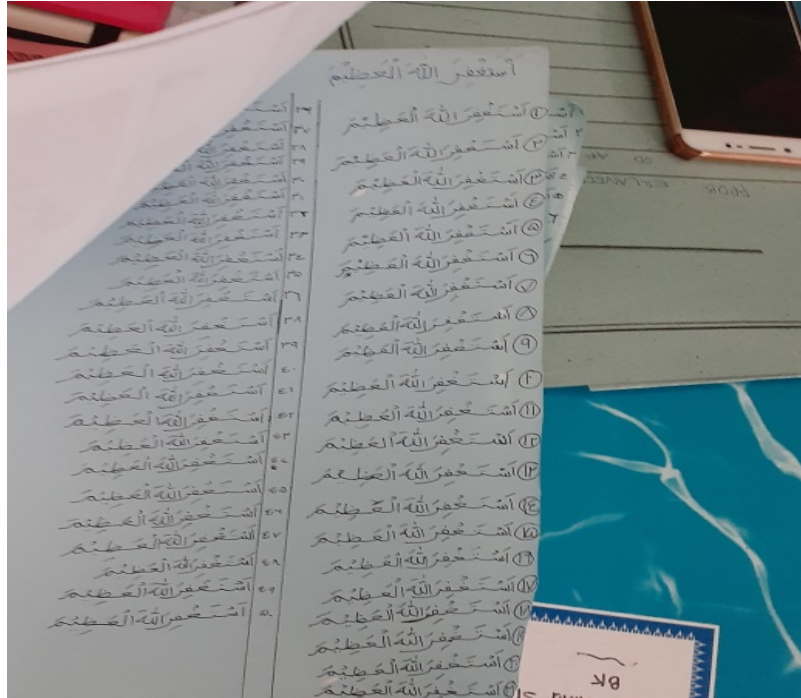 أَسْتَغْفِرَ اللهَ الْعَظِيْمَ
١ أَسْتَغْفِرَ اللهَ الْعَظِيْمَ
٢ أَسْتَغْفِرَ اللهَ الْعَظِيْمَ
٣ أَسْتَغْفِرَ اللهَ الْعَظِيْمَ
٤ أَسْتَغْفِرَ اللهَ الْعَظِيْمَ
٥ أَسْتَغْفِرَ اللهَ الْعَظِيْمَ
٦ أَسْتَغْفِرَ اللهَ الْعَظِيْمَ
٧ أَسْتَغْفِرَ اللهَ الْعَظِيْمَ
٨ أَسْتَغْفِرَ اللهَ الْعَظِيْمَ
٩ أَسْتَغْفِرَ اللهَ الْعَظِيْمَ
أَسْتَغْفِرَ اللهَ الْعَظِيْمَ
١١ أَسْتَغْفِرَ اللهَ الْعَظِيْمَ
١٢ أَسْتَغْفِرَ اللهَ الْعَظِيْمَ
١٣ أَسْتَغْفِرَ اللهَ الْعَظِيْمَ
١٤ أَسْتَغْفِرَ اللهَ الْعَظِيْمَ
١٥ أَسْتَغْفِرَ اللهَ الْعَظِيْمَ
١٦ أَسْتَغْفِرَ اللهَ الْعَظِيْمَ
١٧ أَسْتَغْفِرَ اللهَ الْعَظِيْمَ
١٨ أَسْتَغْفِرَ اللهَ الْعَظِيْمَ
أَسْتَغْفِرَ اللهَ الْعَظِيْمَ
أَسْتَغْفِرَ اللهَ الْعَظِيْمَ
أَسْتَغْفِرَ اللهَ الْعَظِيْمَ
٢٨
٢٩ اللهَ
٣٠
٣١ أَسْتَغْفِرَ
٣٢ أَسْتَغْفِرَ اللهَ الْعَظِيْمَ
٣٣ أَسْتَغْفِرَ اللهَ الْعَظِيْمَ
٣٤ أَسْتَغْفِرَ اللهَ الْعَظِيْمَ
٣٥ أَسْتَغْفِرَ اللهَ الْعَظِيْمَ
٣٦ أَسْتَغْفِرَ اللهَ الْعَظِيْمَ
٣٨ أَسْتَغْفِرَ اللهَ الْعَظِيْمَ
٣٩ أَسْتَغْفِرَ اللهَ الْعَظِيْمَ
٤٠ أَسْتَغْفِرَ اللهَ الْعَظِيْمَ
٤١ أَسْتَغْفِرَ اللهَ الْعَظِيْمَ
٤٢ أَسْتَغْفِرَ اللهَ الْعَظِيْمَ
٤٣ أَسْتَغْفِرَ اللهَ الْعَظِيْمَ
٤٤ أَسْتَغْفِرَ اللهَ الْعَظِيْمَ
٤٥ أَسْتَغْفِرَ اللهَ الْعَظِيْمَ
٤٦ أَسْتَغْفِرَ اللهَ الْعَظِيْمَ
٤٧ أَسْتَغْفِرَ اللهَ الْعَظِيْمَ
٤٨ أَسْتَغْفِرَ اللهَ الْعَظِيْمَ
٤٩ أَسْتَغْفِرَ اللهَ الْعَظِيْمَ
٥٠ أَسْتَغْفِرَ اللهَ الْعَظِيْمَ
BK